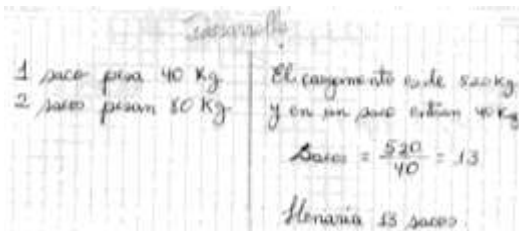 Desarrollo
1 saco pesa 40 Kg
2 sacos pesan 80 Kg
El cargamento es de 520 Kg
y en un saco entran 40 Kg
Sacos = 520/40 = 13
llenaria 13 sacos